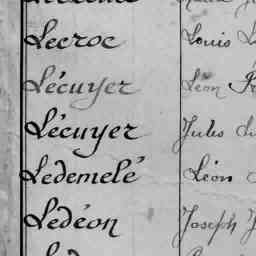 Lecroc Louis
Lécuyer Léon
Lécuyer Jules
Ledemelé Léon
Ledéon Joseph